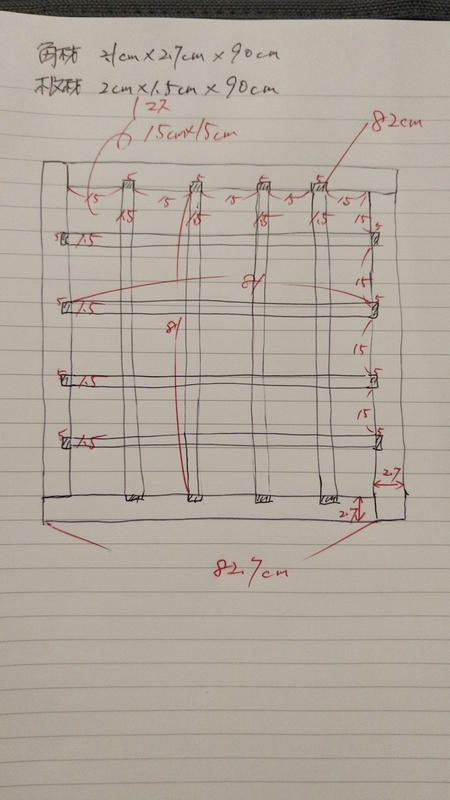 角材 2.1cm×2.7cm×90cm
板材 2cm×1.5cm×90cm
1マス
15cm×15cm
82cm
5 5 5 5
15 15 15 15 15
1.5 1.5 1.5 1.5 15
5 1.5 5
15
81
5 1.5 5
81
15
5 1.5 5
15
5 1.5 5
2.7
2.7
82.7cm